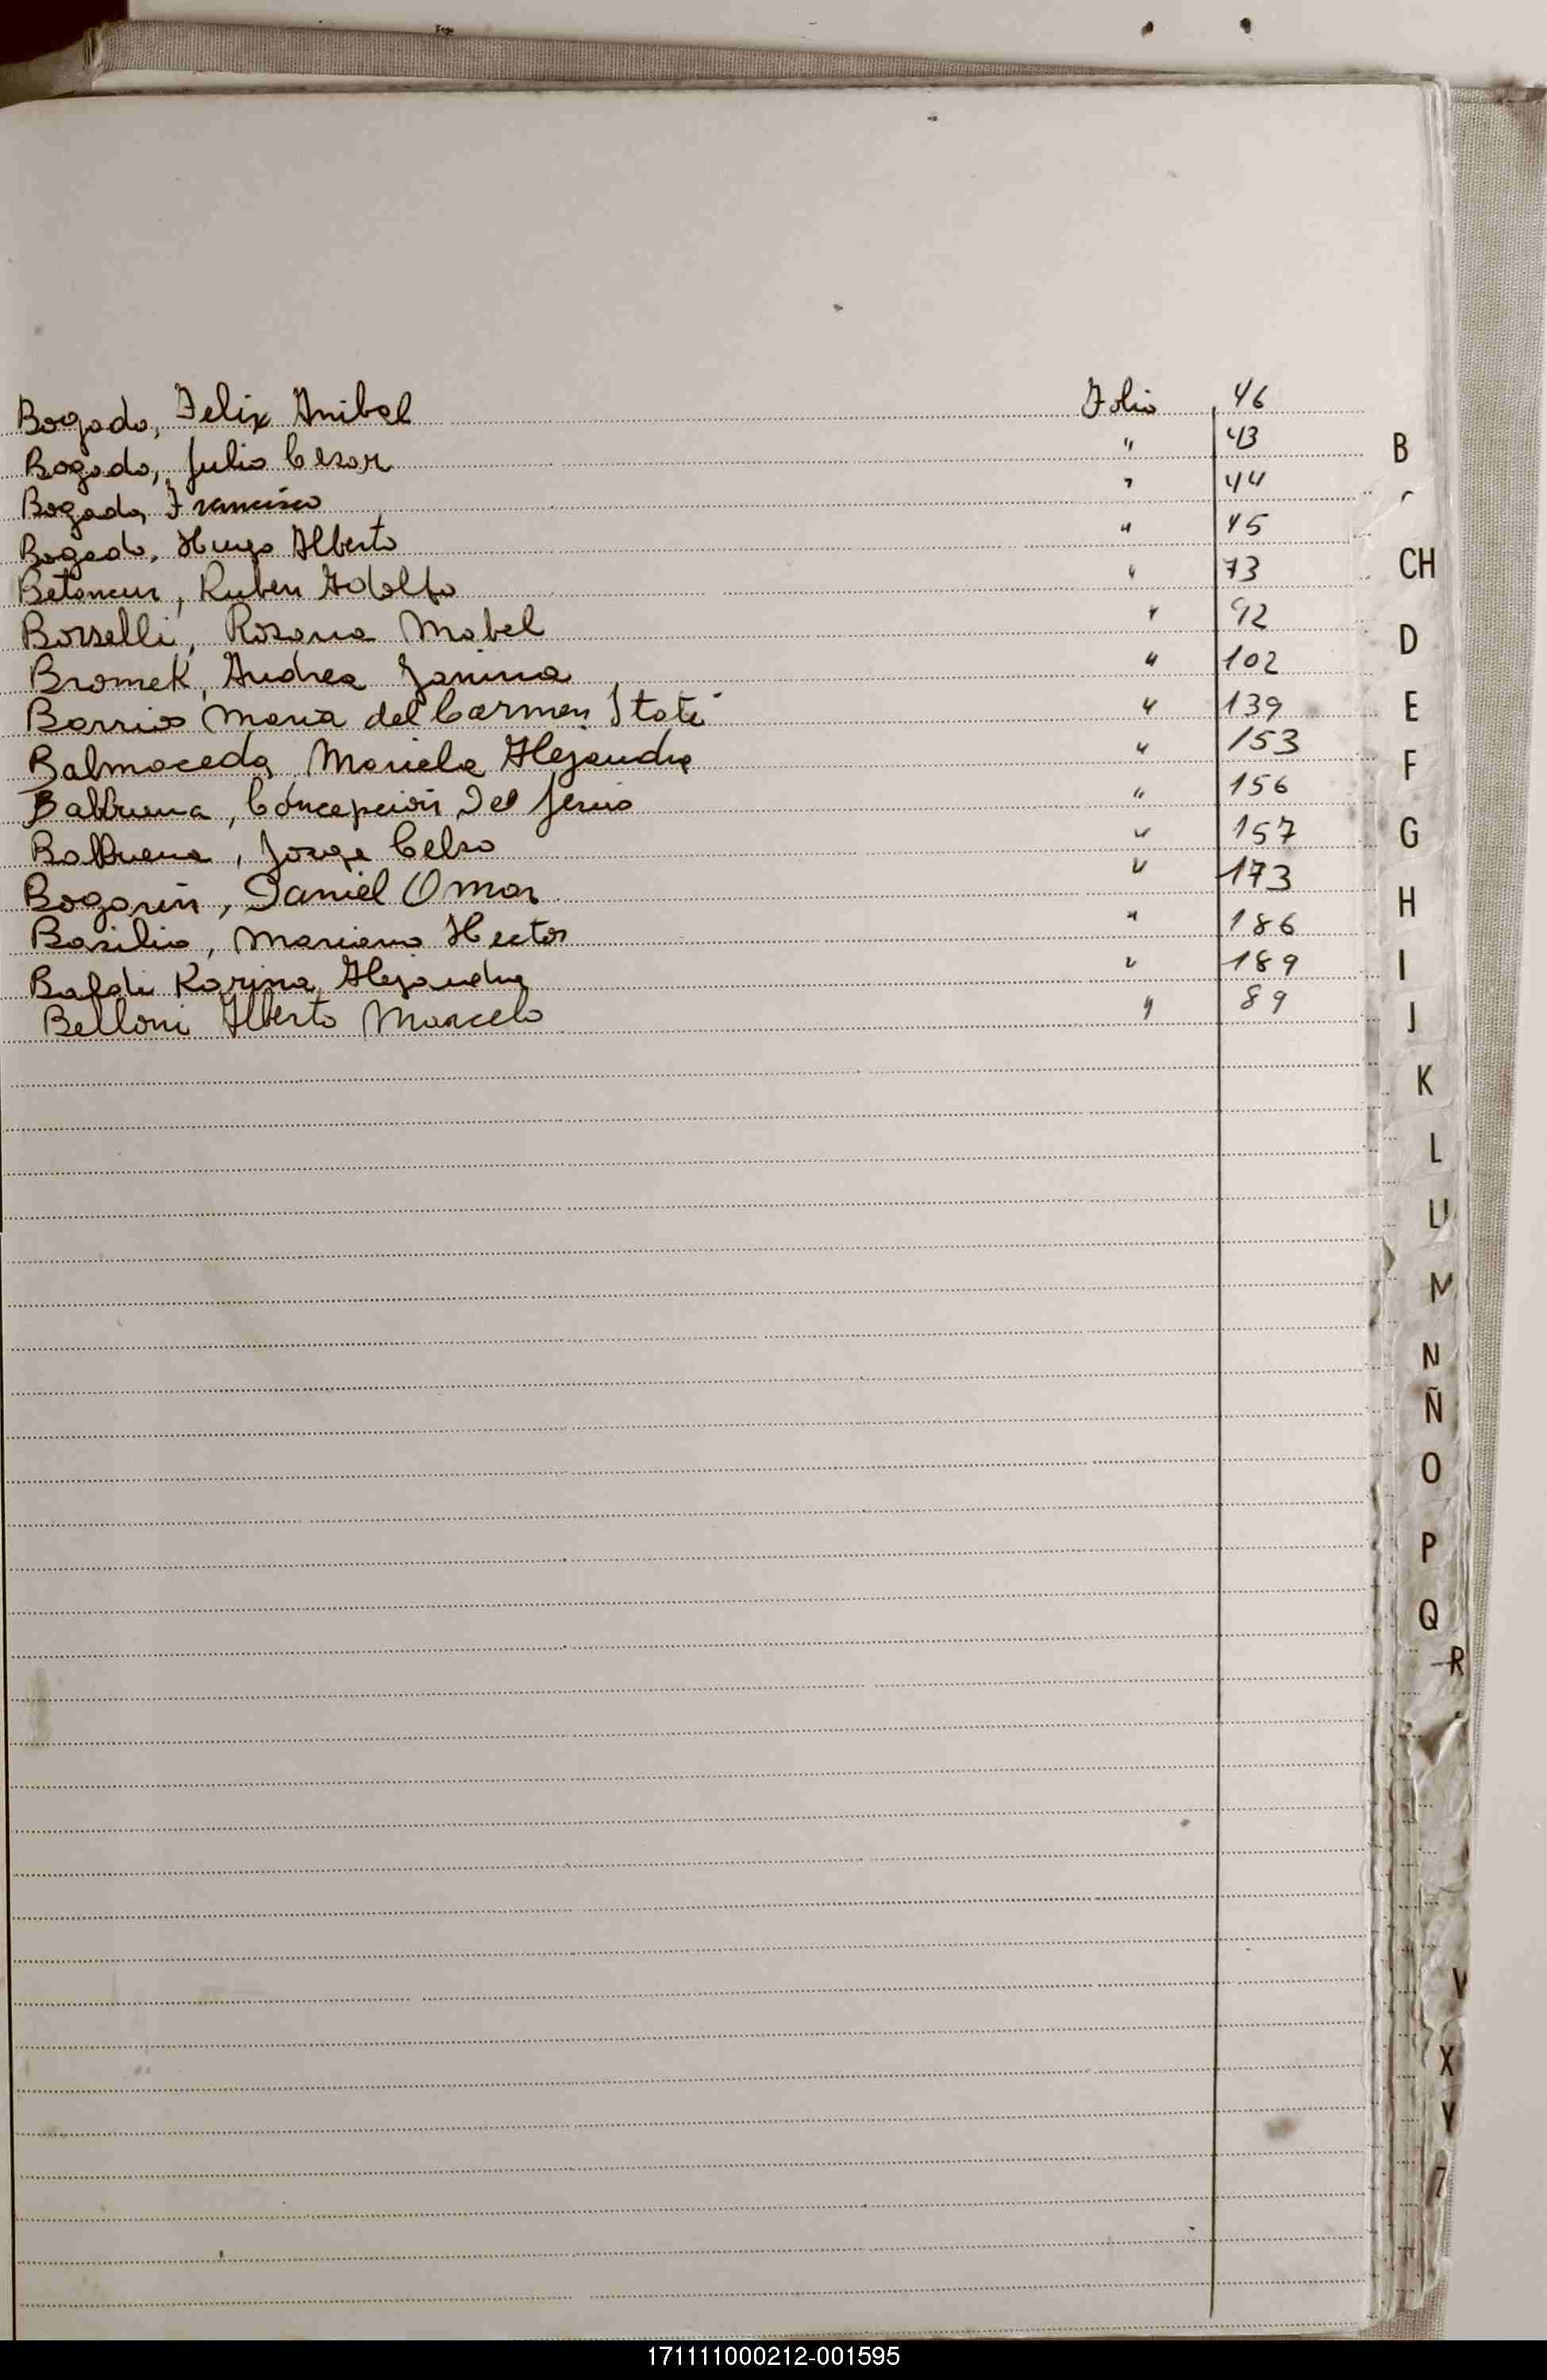 Bogado, Felix Anibal Folio 46
Bogado, Julio Cesar " 43
Bogado, Francisco " 44
Bogado, Hugo Alberto " 45
Betancur, Ruben Adolfo " 73
Borselli, Rosana Mabel " 92
Bromek, Andrea Janina " 102
Barrios Maria del Carmen Itatí " 139
Balmaceda, Mariela Alejandra " 153
Balbuena, Concepción Del Jesus " 156
Balbuena, Jorge Celso " 157
Bogarin, Daniel Omar " 173
Basilio, Mariano Hector " 186
Karina Alejandra " 189
Belloni Alberto Marcelo " 89
B
CH
D
E
F
G
H
I
J
K
L
M
N
Ñ
O
P
Q
R
V
X
Y
171111000212-001595